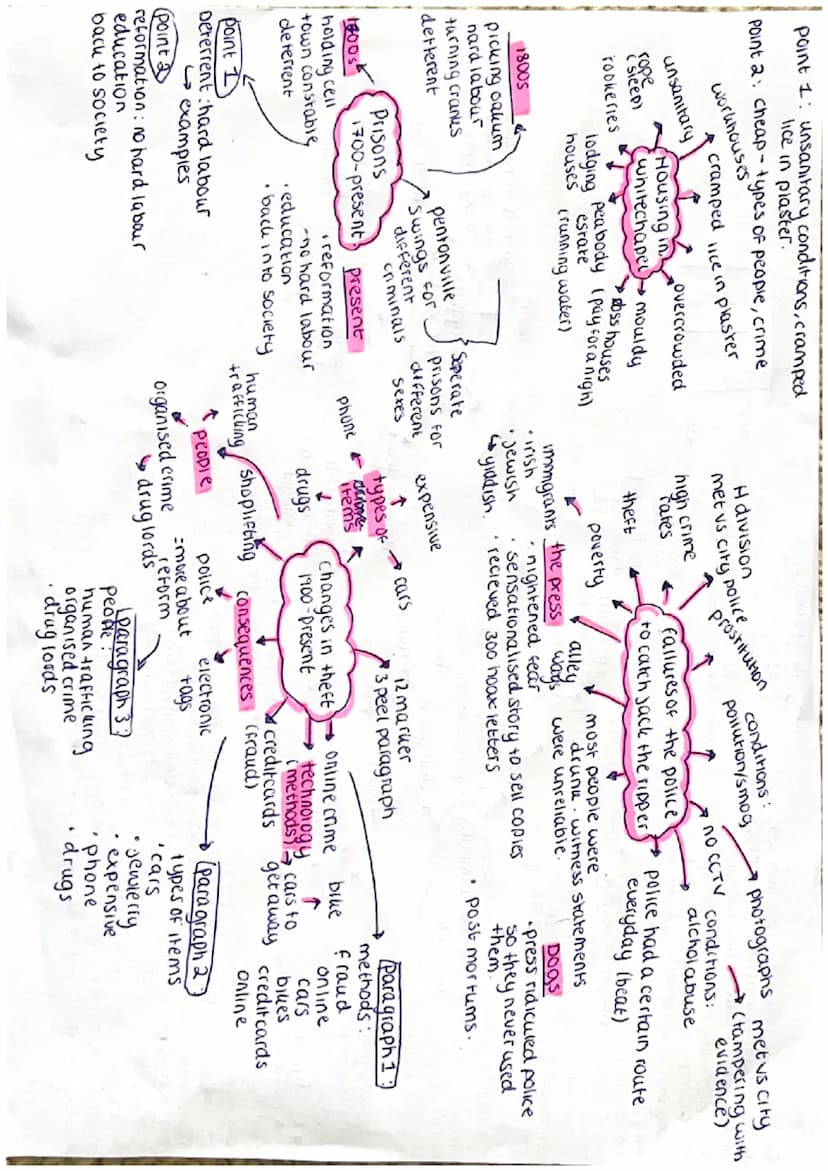 Point 1: unsanitary conditions, cramped
lice in plaster.
Point 2: cheap - types of people, crime
workhouses
cramped
lice in plaster
unsanitary
overcrowded
rope
(sleep)
rookeries
Housing in
whitechapel
mouldy
doss houses
(pay for a nigh)
lodging
houses
peabody
estate
(running water)
1800s
picking oakum
hard labour
turning cranks
deterrent
pentonville
swings for
different
criminals
seperate
prisons for
different
sexes
Prisons
1700-present
1700s
holding cell
town constable
deterrent
present
·reformation
-no hard labour
·education
·back into society
Point 1
Deterrent: hard labour
↳ examples
point 2
reformation: no hard labour
education
back to society
H division
met vs city police
prostitution
conditions:
pollution/smog
photographs
met vs city
(tampering with
evidence)
no CCTV
conditions:
alchol abuse
high crime
rates
theft
poverty
failures of the police
to catch jack the ripper
police had a certain route
everyday (beat)
immigrants
·irish
·jewish
↳ yiddish.
the press
·hightened fear
·sensationalised story to sell copies
·recieved 300 hoax letters
alley
ways
most people were
drunk. witness statements
were unreliable.
DOGS
·press ridiculed police
so they never used
them.
·post mortums.
expensive
types of
items
cars
phone
drugs
12 marker
3 peel paragraph
changes in theft
1900-present
shoplifting
human
trafficking
people
organised crime
↳ drug lords
consequences
police
=more about
reform
electronic
tags
online crime
technology
(methods)
bike
cars to
getaway
credit cards
(fraud)
paragraph 1:
methods:
fraud
online
cars
bikes
credit cards
online
paragraph 2:
types of items
·cars
·jewlerry
·expensive
·phone
·drugs
paragraph 3:
people:
human trafficking
organised crime
·drug lords